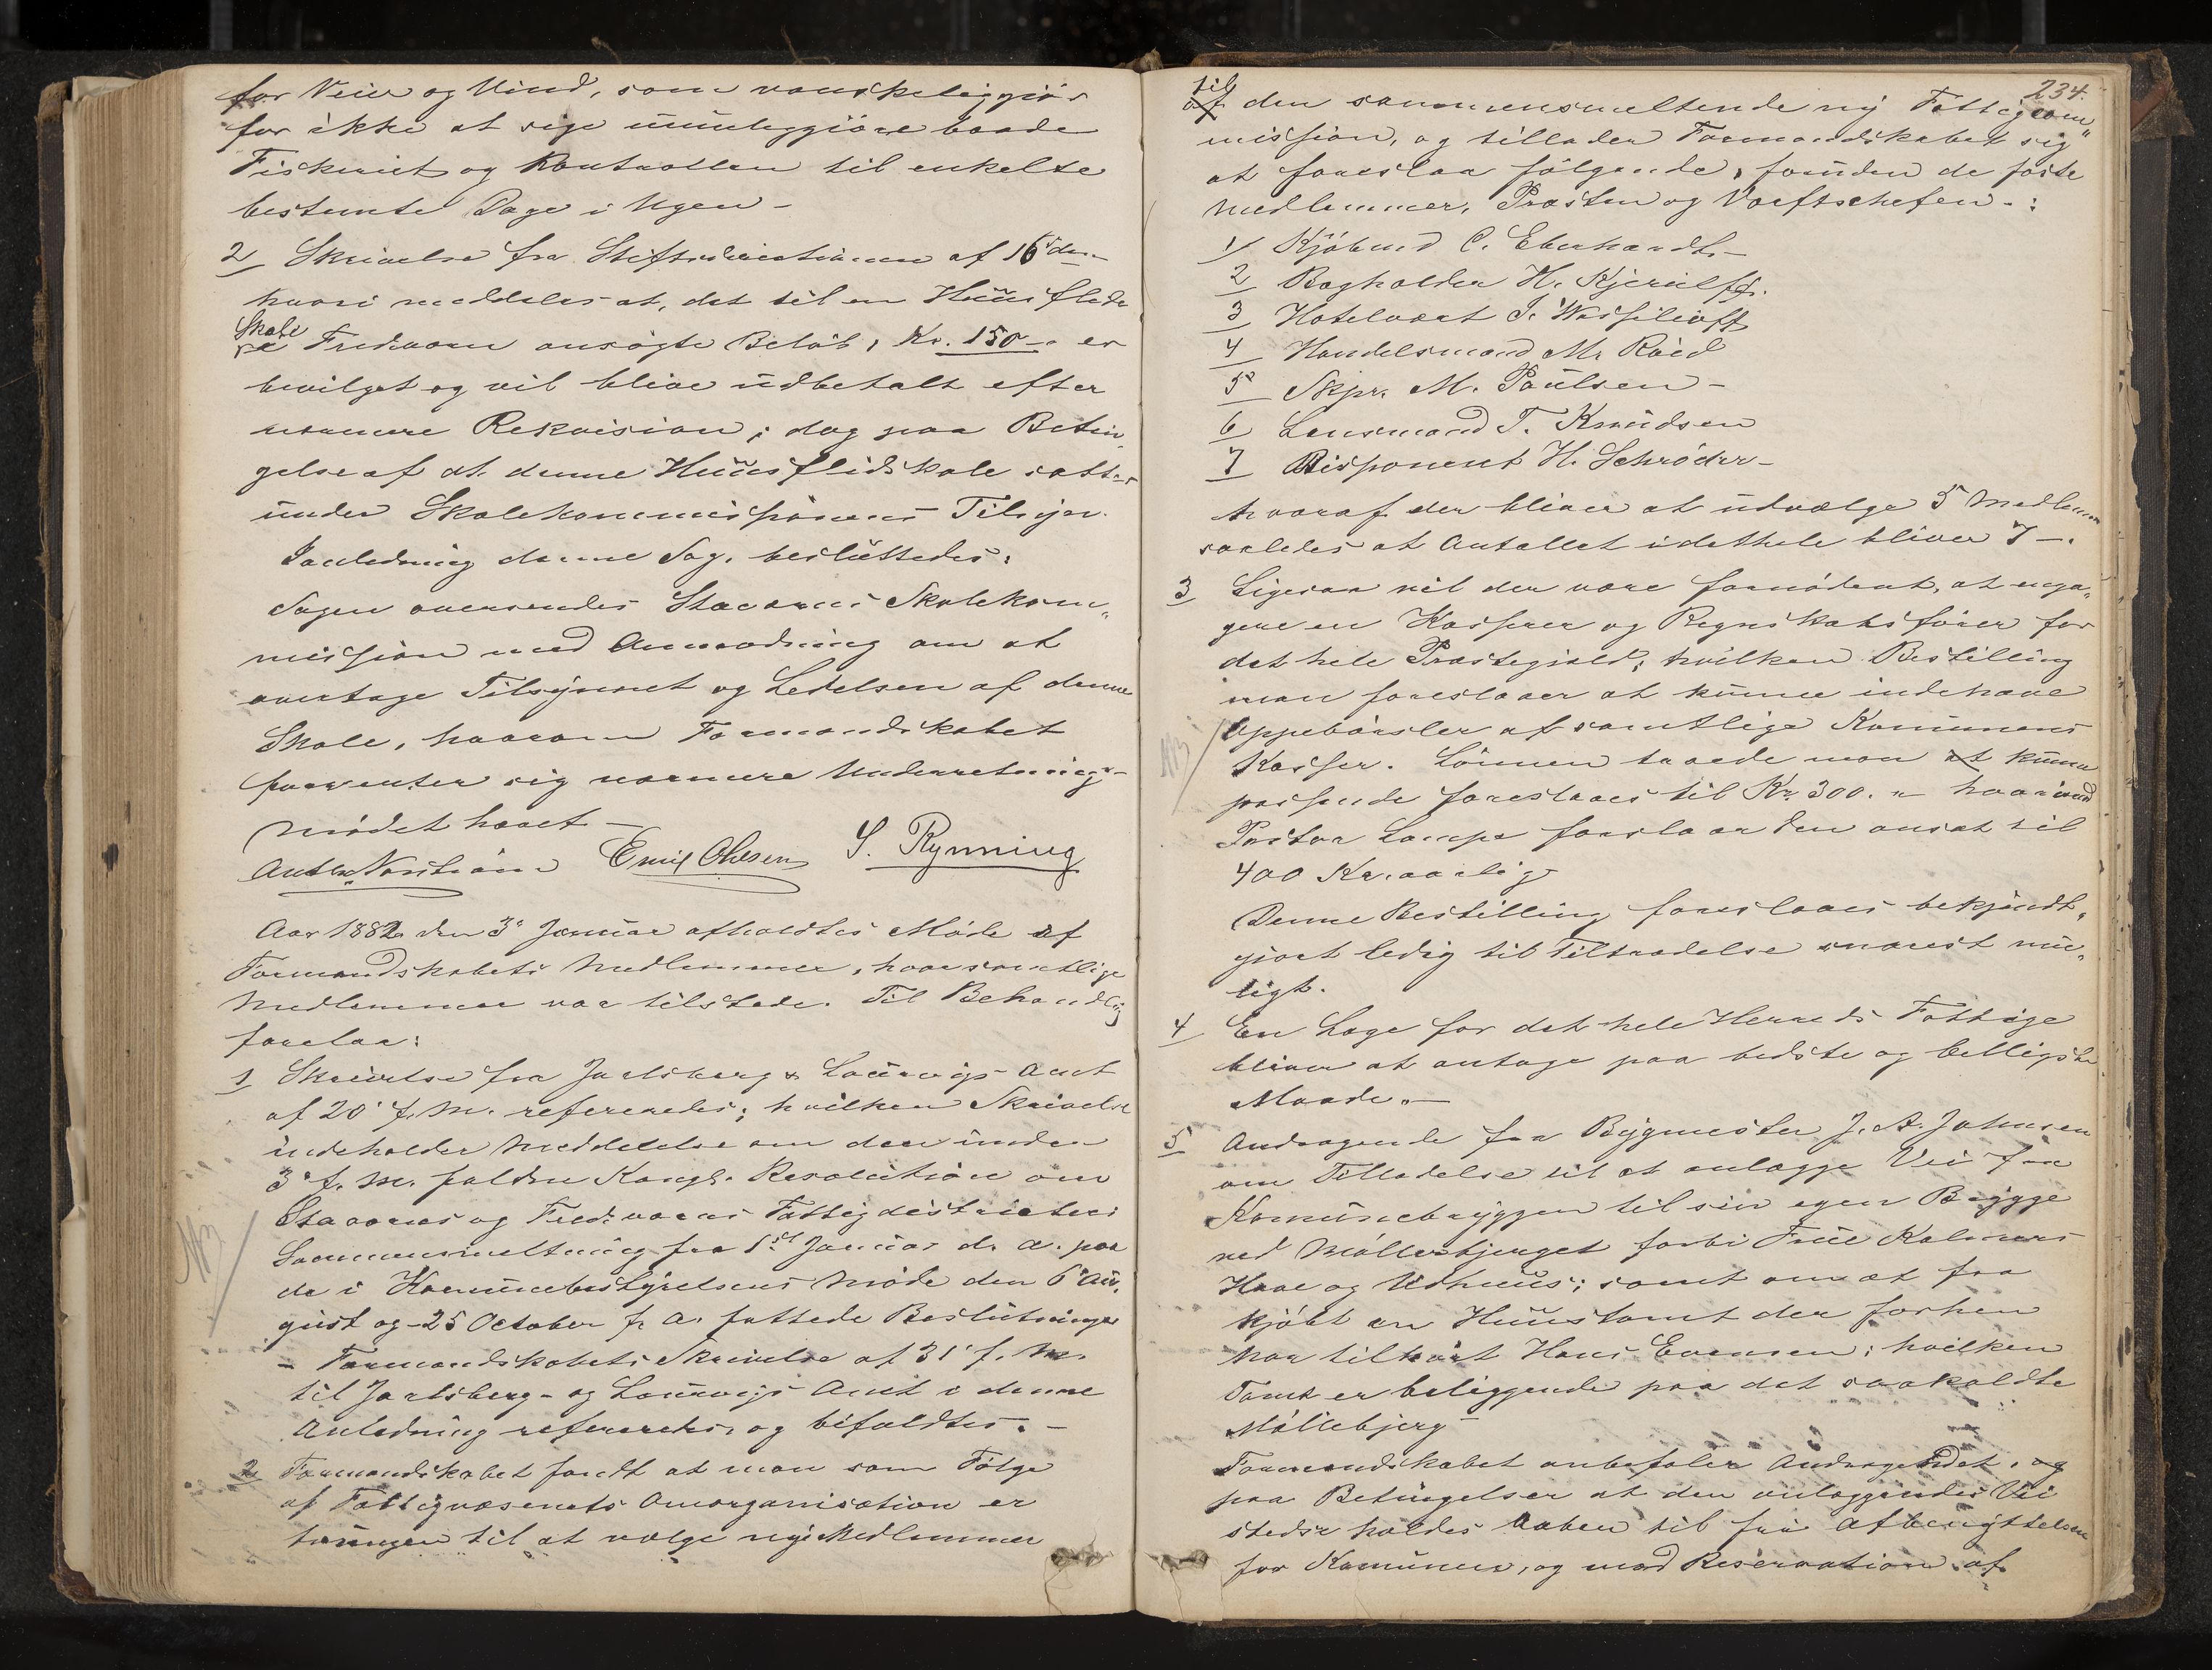 for Veir og Vind, som vanskeliggjør
for ikke at sige umuliggjøre baade
Fiskeriet og Kontrollen til enkelte
bestemte Dage i Ugen –
2 Skrivelse fra Stiftsdirectionen af 16de
hvori meddeles at, det til en Huusflids
Skole
Fredværn ansøgte Beløb, Kr. 150 – er
bevilget og vil blive udbetalt efter
nærmere Rekvisision; dog paa Betin„
gelse af at denne Huusflidskole sættes
under Skolekommissionens Tilsyn.
I anledning denne Sag, besluttedes:
Sagen oversendes Staværns Skolekom„
mission med Anmodning om at
overtage Tilsynnet og Ledelsen af denne
Skole, hvorom Formandskabet
forventer sig nærmere Underretning –
Mødet hævet –
Emil Ohlsen S. Rynning
Aar 1882 den 3' Januar afholdtes Møde af
Formandskabets Medlemmer, hvor samtlige
Medlemmer var tilstede. Til Behandling
forelaa:
1 Skrivelse fra Jarlsberg & Laurvigs Amt
af 20' f. M. refereredes; hvilken Skrivelse
indeholder Meddelelse om den under
3' f. M. faldne Kongl. Resolution om
Staværns og Fredværns Fattigdistricters
Sammensmeltning fra 1st Januar d. A. paa
de i Kommunebestyrelsens Møde den 6' Au„
gust og 25 October f. A. fattede Beslutninger
– Formandskabets Skrivelse af 31' f. M.
til Jarlsberg- og Laurvigs Amt i denne
Anledning refereredes, og bifaldtes. –
2 Formandskabet fandt at man som Følge
af Fattigvæsenets Omorganisation er
tvungen til at vælge nye Medlemmer
234.
til
af den sammensmeltende ny Fattigcom„
mission, og tillader Formandskabet sig
at foreslaa følgende, foruden de faste
Medlemmer, Præsten og Værftschefen –:
1 Kjøbmd C. Eberhardt –
2 Bogholder H. Kjerulff.
3 Hotelvært J. Wassilioff
4 Handelsmand M. Röed
5 Skpr. M. Paulsen –
6 Lensmand T. Knudsen
7 Disponent H. Schrøder –
hvoraf der bliver at udvælge 5 Medlemmer
saaledes at Antallet idethele bliver 7 –.
3 Ligesaa vil der være fornødent, at enga„
gere en Kasserer og Regnskabsfører for
det hele Præstegjeld; hvilken Bestilling
man foreslaaer at kunne indehave
Oppebørsler af samtlige Kommunens
Kasser. Lønnen troede man at kunne
passende foreslaaes til Kr. 300. – hvorimod
Pastor Lampe foreslaar den ansat til
400 Kr. aarlig
Denne Bestilling foreslaaes bekjendt„
gjort ledig til Tiltrædelse snarest mu„
ligt.
4 En Læge for det hele Herreds Fattige
bliver at antage paa bedste og billigste
Maade. –
5 Andragende fra Bygmester J. A. Johnsen
om Tilladelse til at anlægge Vei fra
Kommunebryggen til sin egen Brygge
ved Møllerbjerget forbi Frue
Have og Udhuus; samt om at faa
kjøbt en Huustomt der forhen
har tilhørt Hans Evensen; hvilken
Tomt er beliggende paa det saakaldte
Møllebjerg –
Formandskabet anbefaler Andragendet, og
paa Betingelser at den anlæggendes Vei
stedse holdes aaben til fri Afbenyttelse
for Kommunen, og med Reservation af